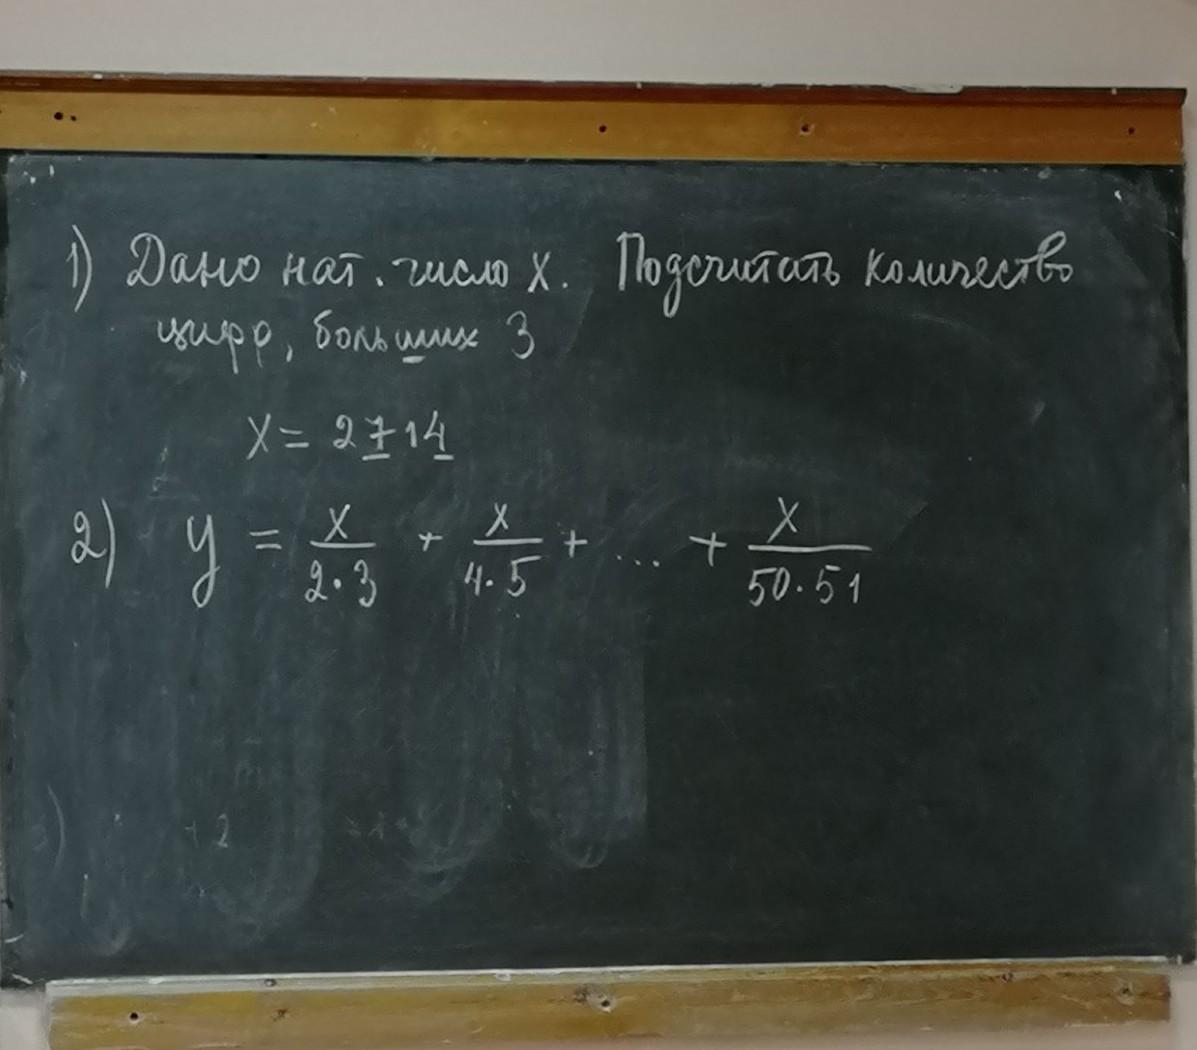 1) Дано нат. число х. Подсчитать количество
цифр, больших 3
х = 2714
2) y = x/2·3 + x/4·5 + ... + x/50·51